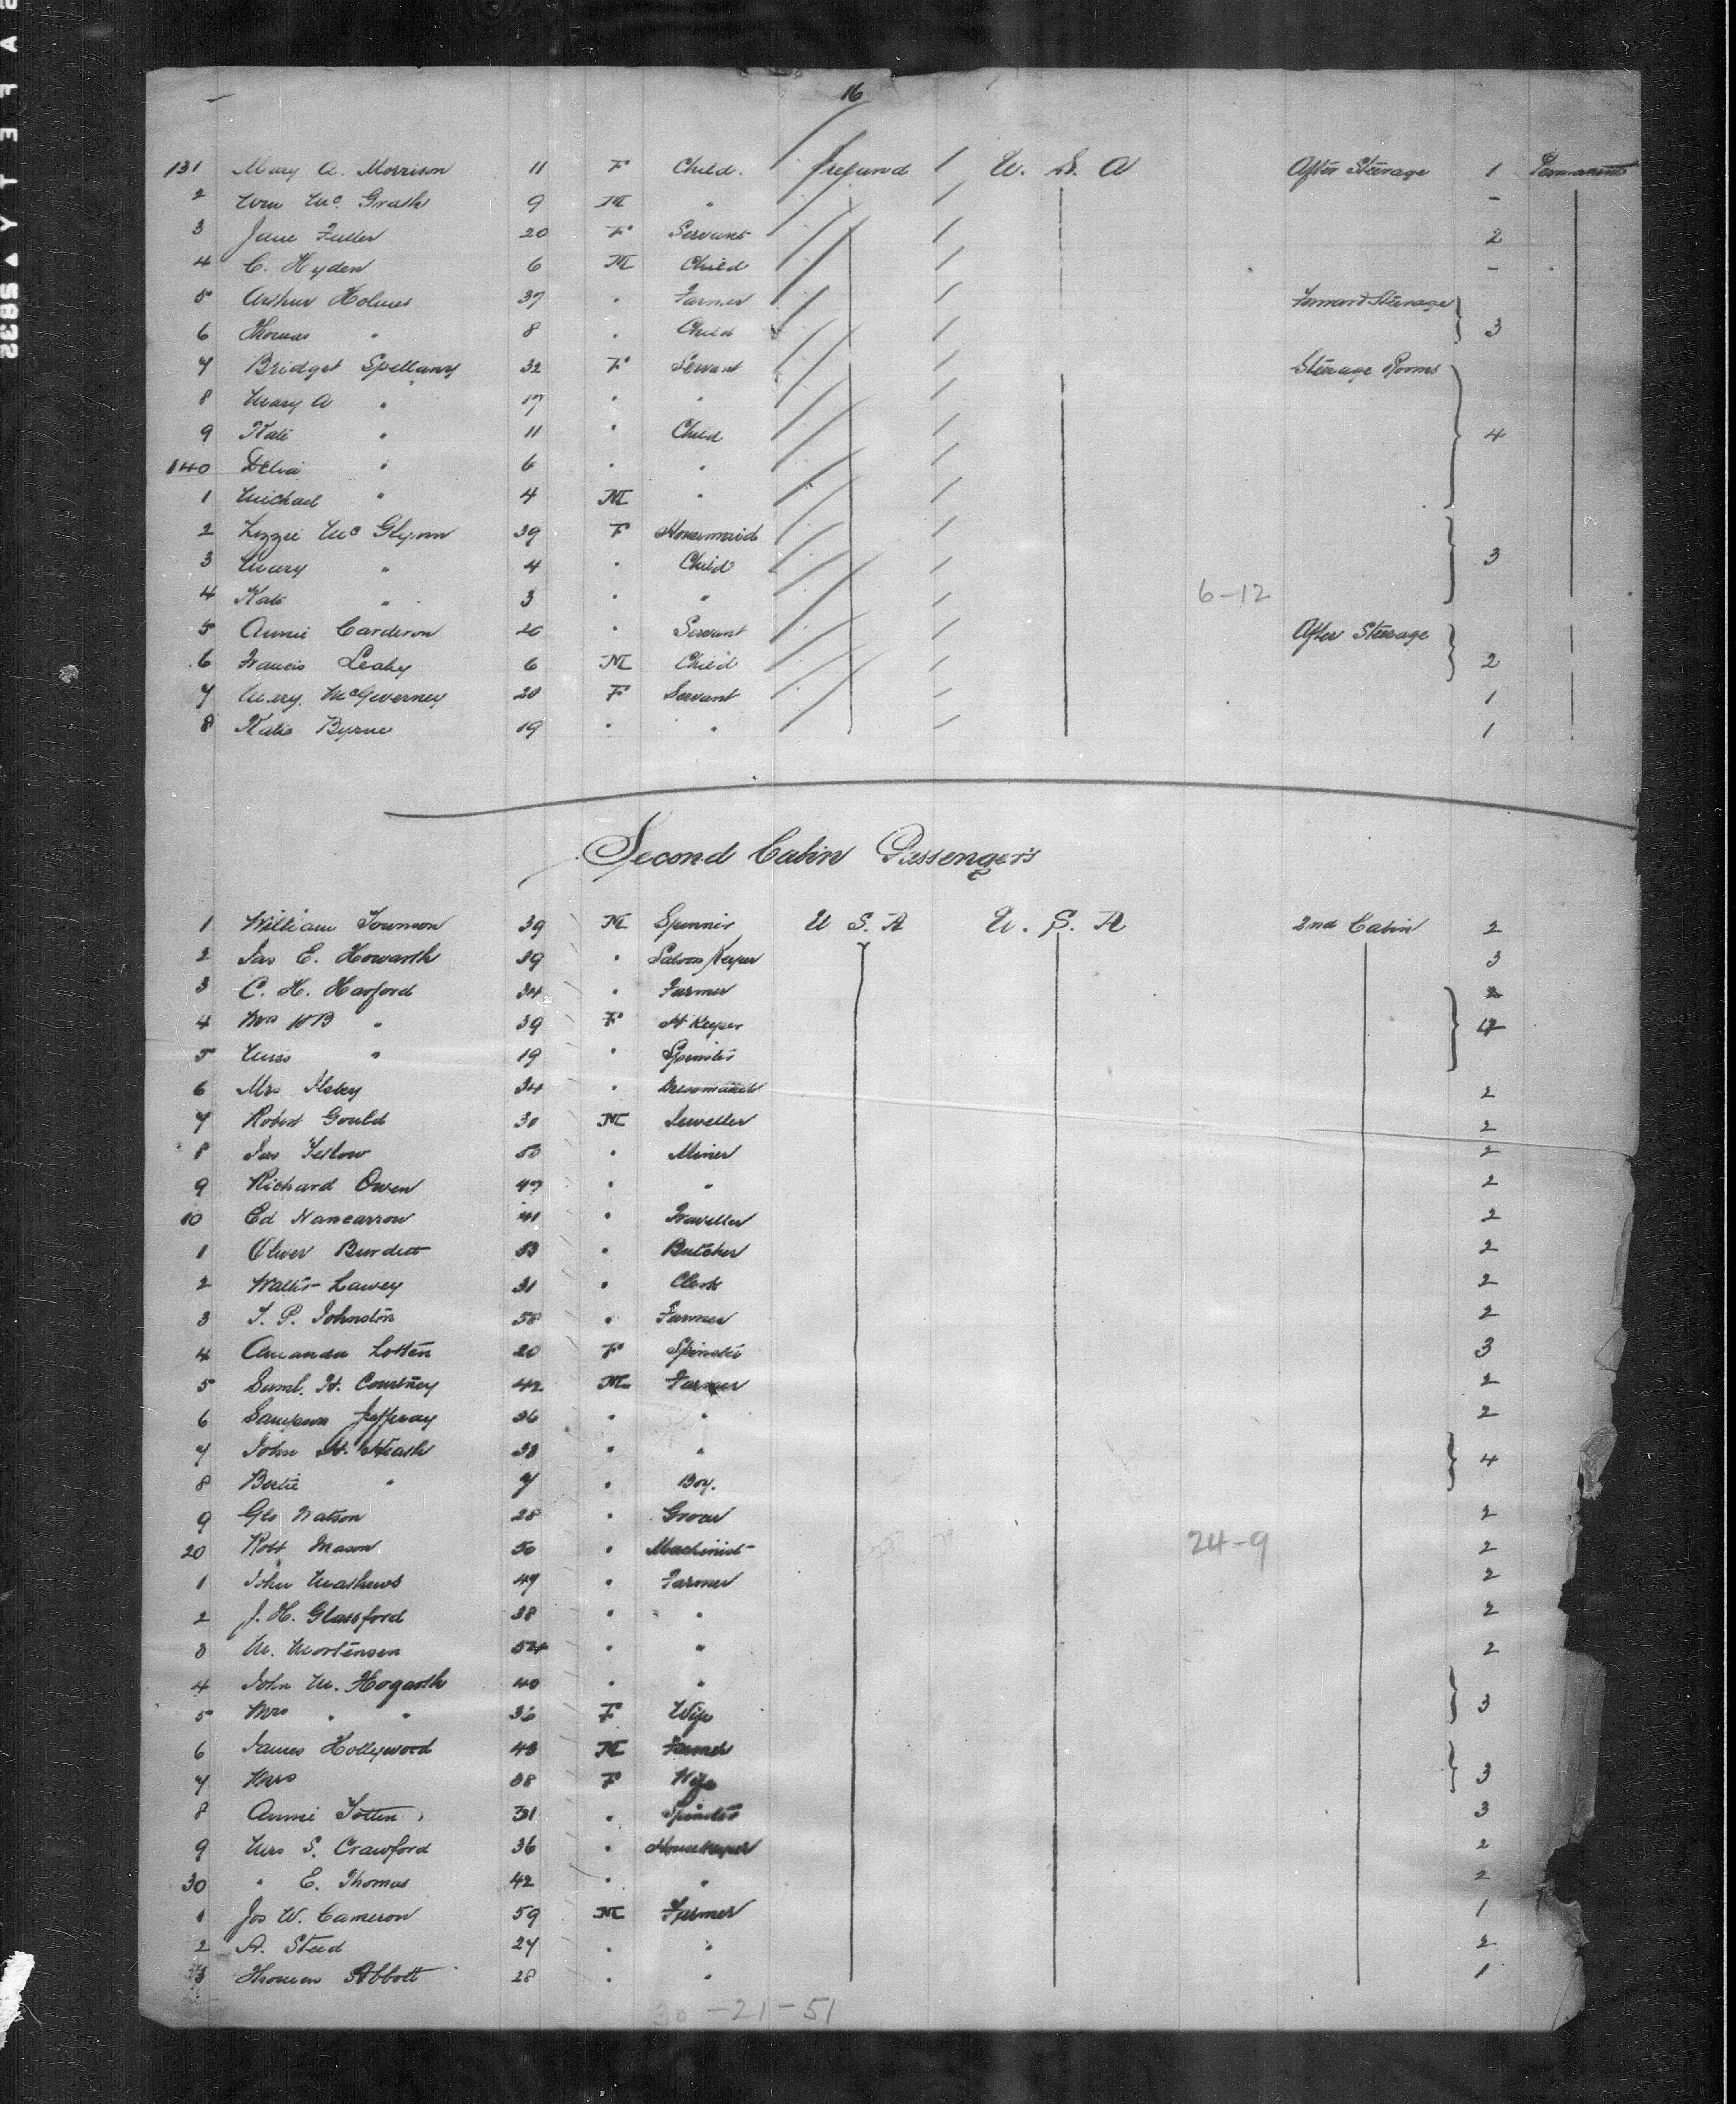 16
131 Mary A. Morrison 11 F Child. Ireland / U. S. A After Steerage 1 Permanent
2 Wm Mc Grath 9 M " / -
3 Jane Fuller 20 F Servant / 2
4 C. Hyden 6 M Child / -
5 Arthur Holmes 37 " Farmer / Forward Steerage
6 Thomas " 8 " Child / 3
7 Bridget Spellany 32 F Servant / Steerage Rooms
8 Mary A " 17 " " /
9 Kate " 11 " Child / 4
140 Delia " 6 " " /
1 Michael " 4 M " /
2 Lizzie Mc Glynn 39 F Housemaid /
3 Mary " 4 " Child / 3
4 Kate " 3 " " / 6-12
5 Annie Carderon 20 " Servant / After Steerage
6 Francis Leahy 6 M Child / 2
7 Mary McGiverney 20 F Servant / 1
8 Katie Byrne 19 " " / 1
Second Cabin Passengers
1 William Townson 39 M Spinner U S. A U. S. A 2nd Cabin 2
2 Jas E. Howarth 39 " Saloon Keeper 3
3 C. H. Harford 34 " Farmer
4 Mrs " 39 F H Keeper 4
5 Miss " 19 " Spinster
6 Mrs 34 " Dressmaker 2
7 Robert Gould 30 M Jeweller 2
8 Jas Tetlow " Miner 2
9 Richard Owen 47 " " 2
10 Ed Nancarrow 41 " Traveller 2
1 Oliver Burdett " Butcher 2
2 Wallis Lawey 31 " Clerk 2
3 T. P. Johnston 58 " Farmer 2
4 Amanda Lotten 20 F Spinster 3
5 Saml. H. Courtney 42 M Farmer 2
6 Sampson Jefferay 36 " " 2
7 John H. Heath 38 " " 4
8 Bertie " 7 " Boy.
9 Geo Watson 28 " Grocer 2
20 Robt Mason 50 " Machinist 24-9 2
1 John Mathews 47 " Farmer 2
2 J. H. Glassford 38 " " 2
3 M. Mortensen 54 " " 2
4 John M. Hogarth 40 " "
5 Mrs " " 36 F Wife 3
6 James Hollywood 43 M Farmer
7 Mrs 38 F Wife 3
8 Annie Totten 31 " Spinster 3
9 Mrs S. Crawford 36 " Housekeeper 2
30 " E. Thomas 42 " " 2
1 Jos W. Cameron 59 M Farmer 1
2 A. Steed 27 " " 2
3 Thomas Abbott 28 " " 1
30 -21-51